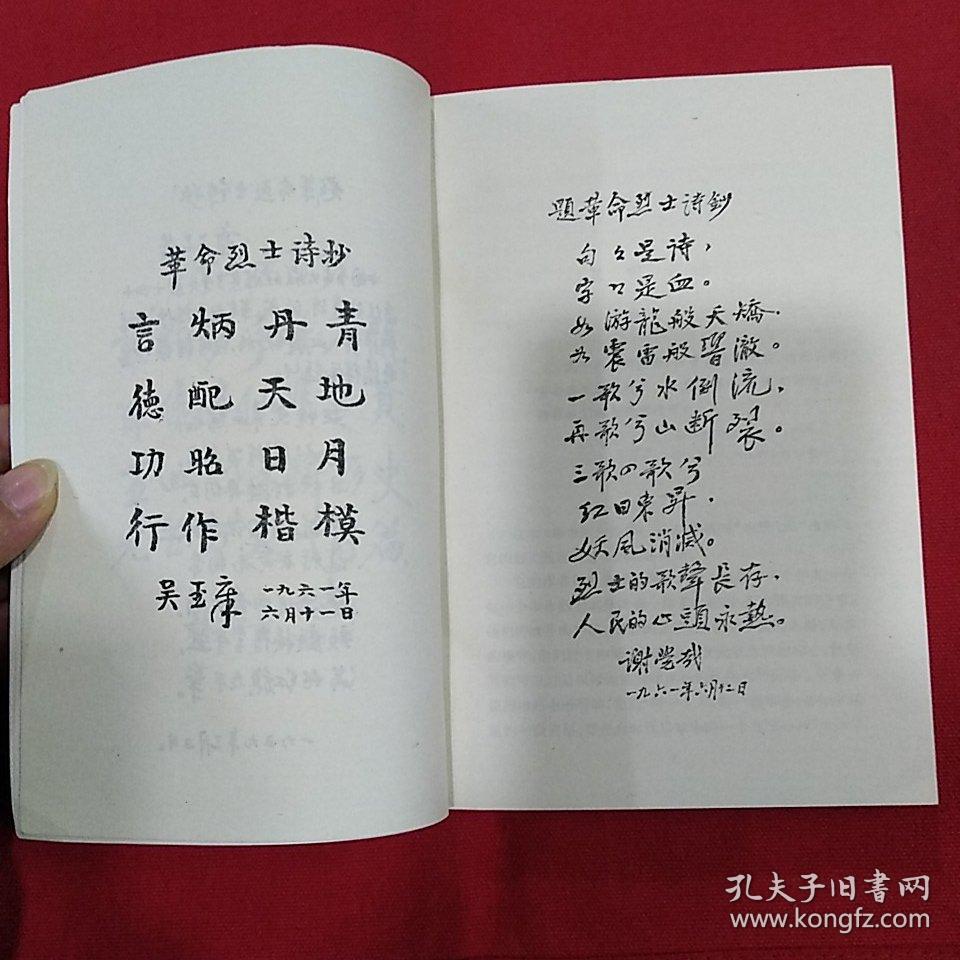 革命烈士诗抄
言炳丹青
德配天地
功昭日月
行作楷模
吴玉章
一九六一年
六月十一日
題革命烈士诗鈔
句々是诗，
字々是血。
如游龍般夭矯．
如震雷般響澈。
一歌兮水倒流，
再歌兮山断裂。
三歌四歌兮
红日東昇，
妖风消滅。
烈士的歌聲長存，
人民的心頭永熱。
谢觉哉
一九六一年六月十二日
孔夫子旧書网
www.kongfz.com